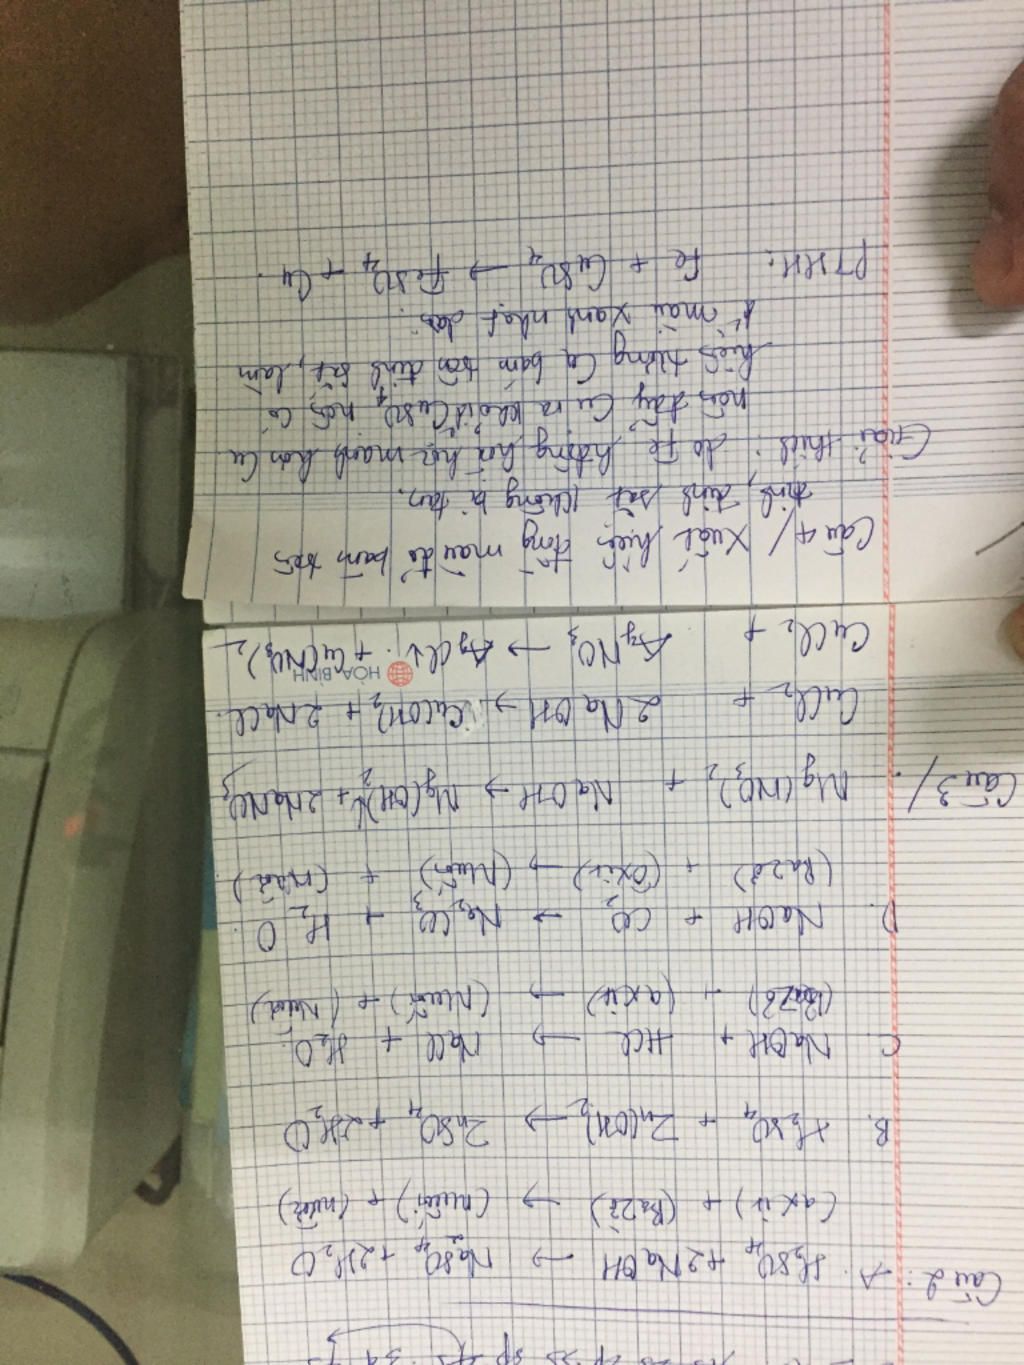 Câu 2: A. H2SO4 + 2NaOH → Na2SO4 + 2H2O
(axit) + (Bazơ) → (muối) + (nước)
B. H2SO4 + Zn(OH)2 → ZnSO4 + 2H2O
C. NaOH + HCl → NaCl + H2O
(Bazơ) + (axit) → (Muối) + (Nước)
D. NaOH + CO2 → Na2CO3 + H2O
(Bazơ) + (Oxit) → (Muối) + (Nước)
Câu 3/. Mg(NO3)2 + NaOH → Mg(OH)2↓ + 2NaNO3
CuCl2 + 2NaOH → Cu(OH)2 + 2NaCl
CuCl2 + AgNO3 → AgCl↓ + Cu(NO3)2
HÒA BÌNH
Câu 4/ Xuất hiện đồng màu đỏ bám trên
đinh, đinh sắt không bị tan.
Giải thích: do Fe hoá học mạnh hơn Cu
nên đẩy Cu ra khỏi CuSO4 nên có
hiện tượng Cu bám trên đinh sắt, làm
màu xanh nhạt dần.
PTHH: Fe + CuSO4 → FeSO4 + Cu.